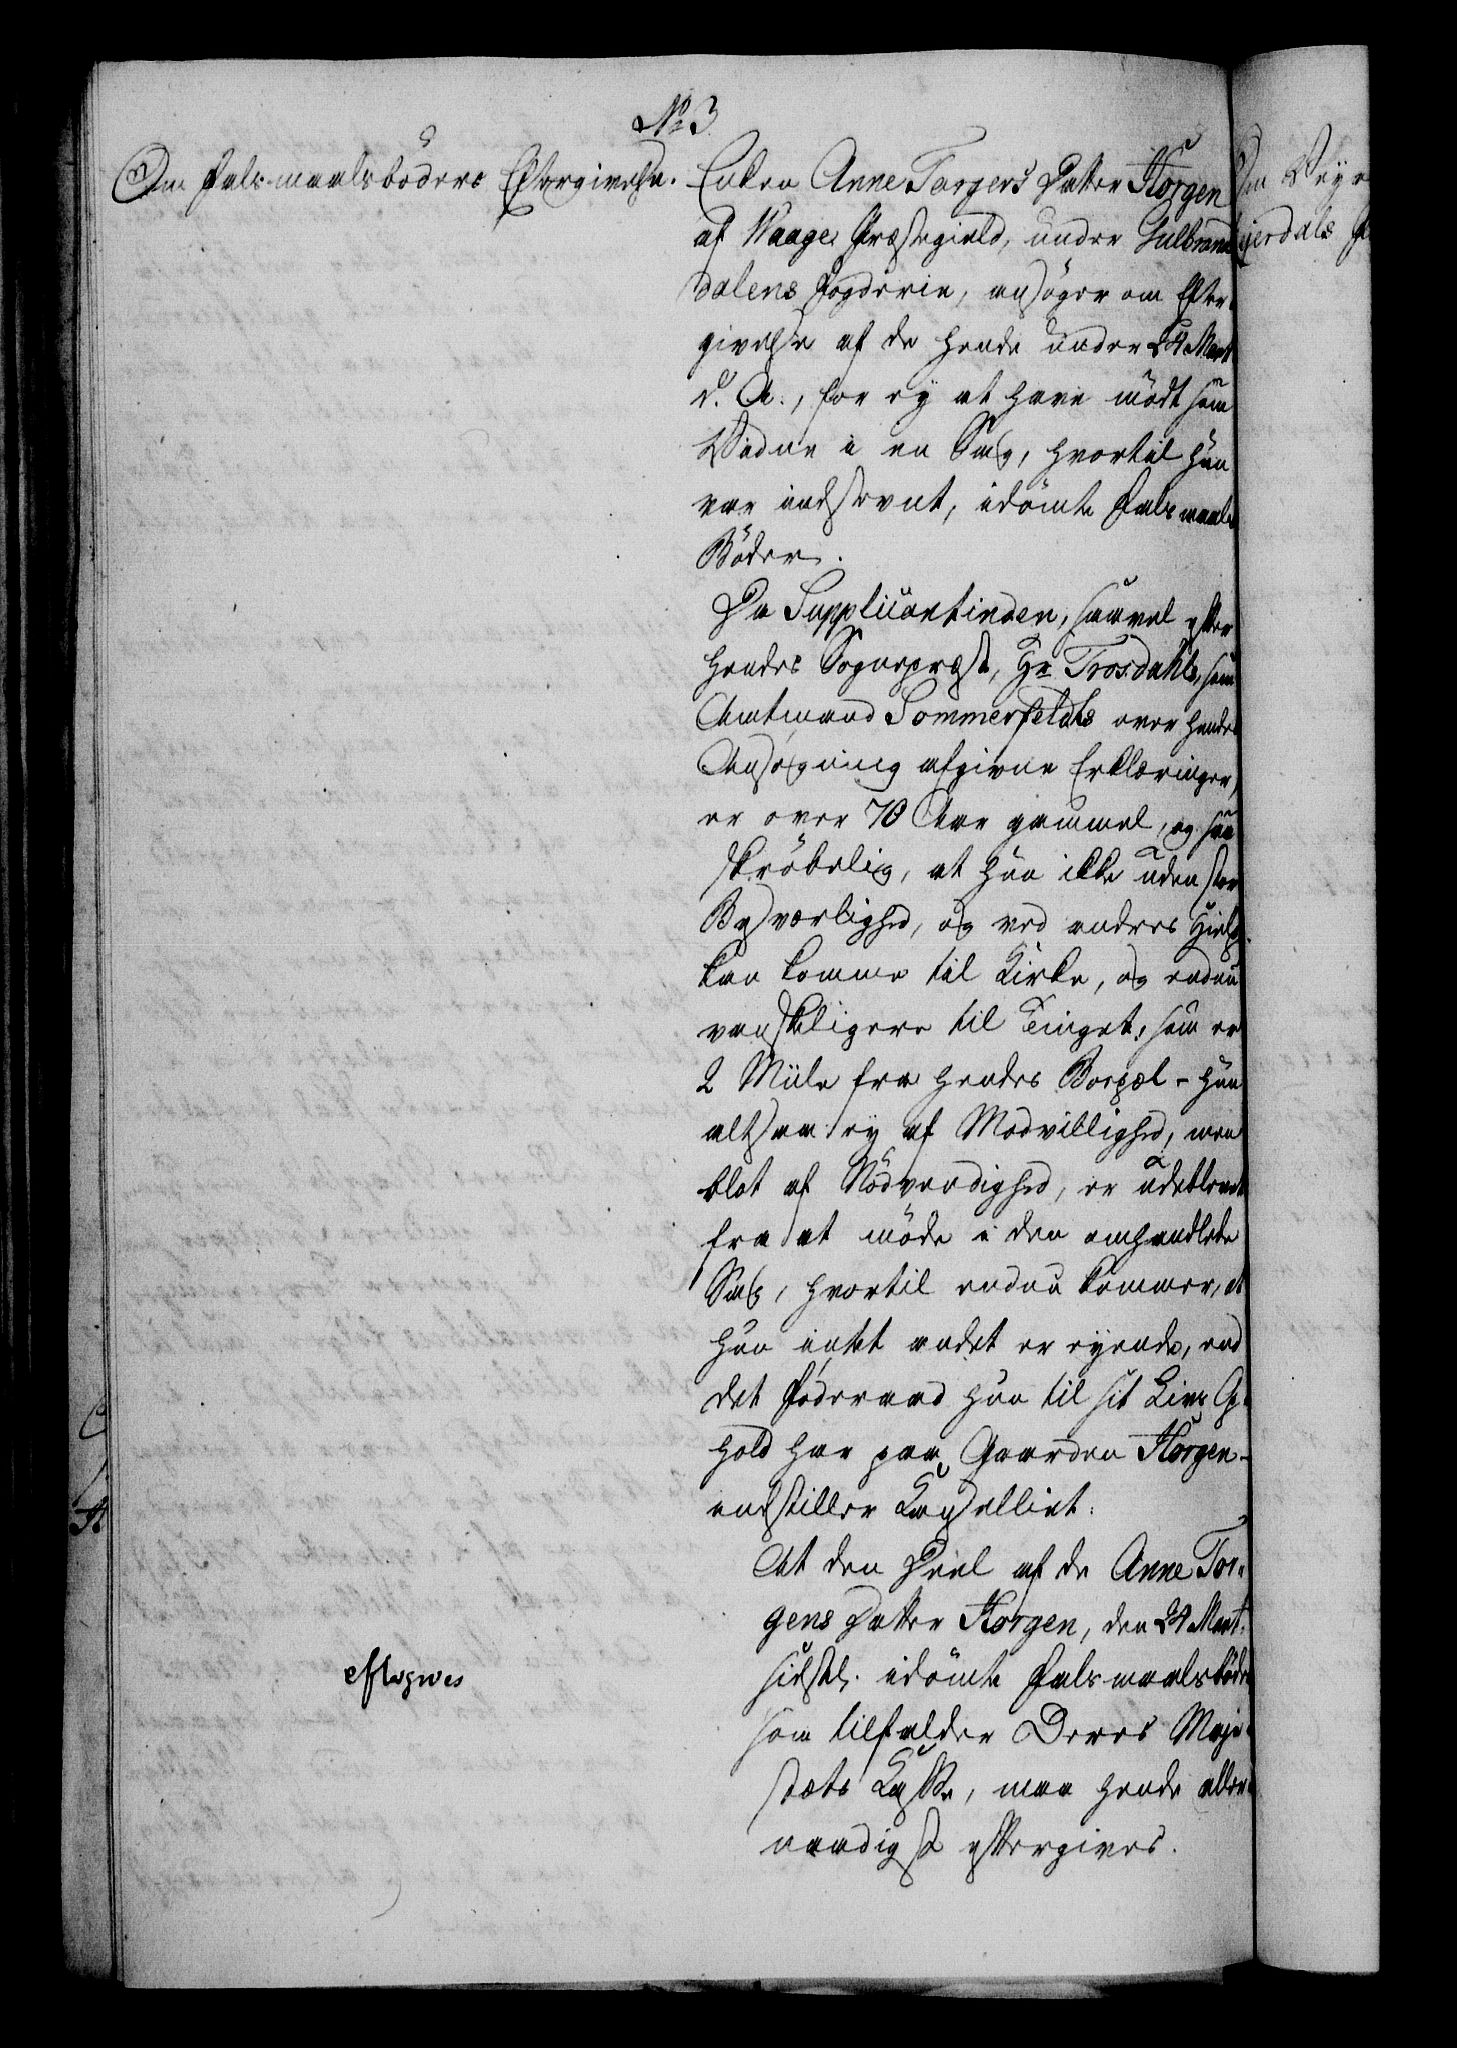 No 3.
Om Falsmaalsböders Eftergivelse.
Enken Anne Torgers Datter Horgen
af Waage Præstegield, under Gulbrands
dalens Fogderie, ansöger om Efter-
givelse af de hende under 24 Mart
d. A., for ey at have mödt som
Vidne i en Sag, hvortil hun
var indstevnt, idömte Falsmaals
Böder.
Da Supplicantinden, saavel efter
hendes Sognepræst, Hr Trosdahls, som
Amtmand Sommerfeldts over hendes
Ansögning afgivne Erklæringer,
er over 70 Aar gammel, og saa
skröbelig, at hun ikke uden stor
Besværlighed, og ved andres Hielp
kan komme til Kirke, og endnu
vanskeligere til Tinget, som er
2 Miile fra hendes Bopæl - hun
altsaa ey af Modvillighed, men
blot af Nödvendighed, er udeblevet
fra at möde i den omhandlede
Sag, hvortil endnu kommer, at
hun intet andet er eyende, end
det Föderaad hun til sit Livs Op-
hold har paa Gaarden Horgen -
indstiller Cancelliet:
At den Deel af de Anne Tor-
gers Datter Horgen, den 24 Mart.
sidstl. idömte Falsmaalsböder
som tilfalder Deres Maje-
stæts Kasse, maa hende aller-
naadigst eftergives.
eftergives